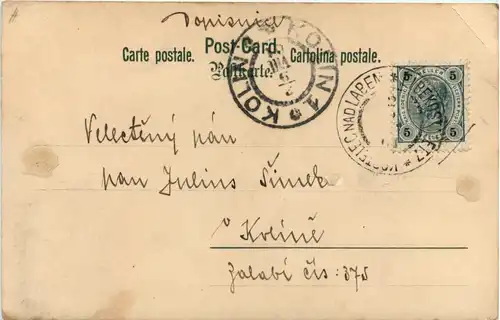 Dopisnice
Carte postale. Post-Card. Cartolina postale.
Postkarte.
KOLIN 1 KOLÍN
KOSTELEC NAD LABEM
5 5
5 5
Velectěný pán
pan Julius Šimek
v Kolíně
Zalabí čís: 375